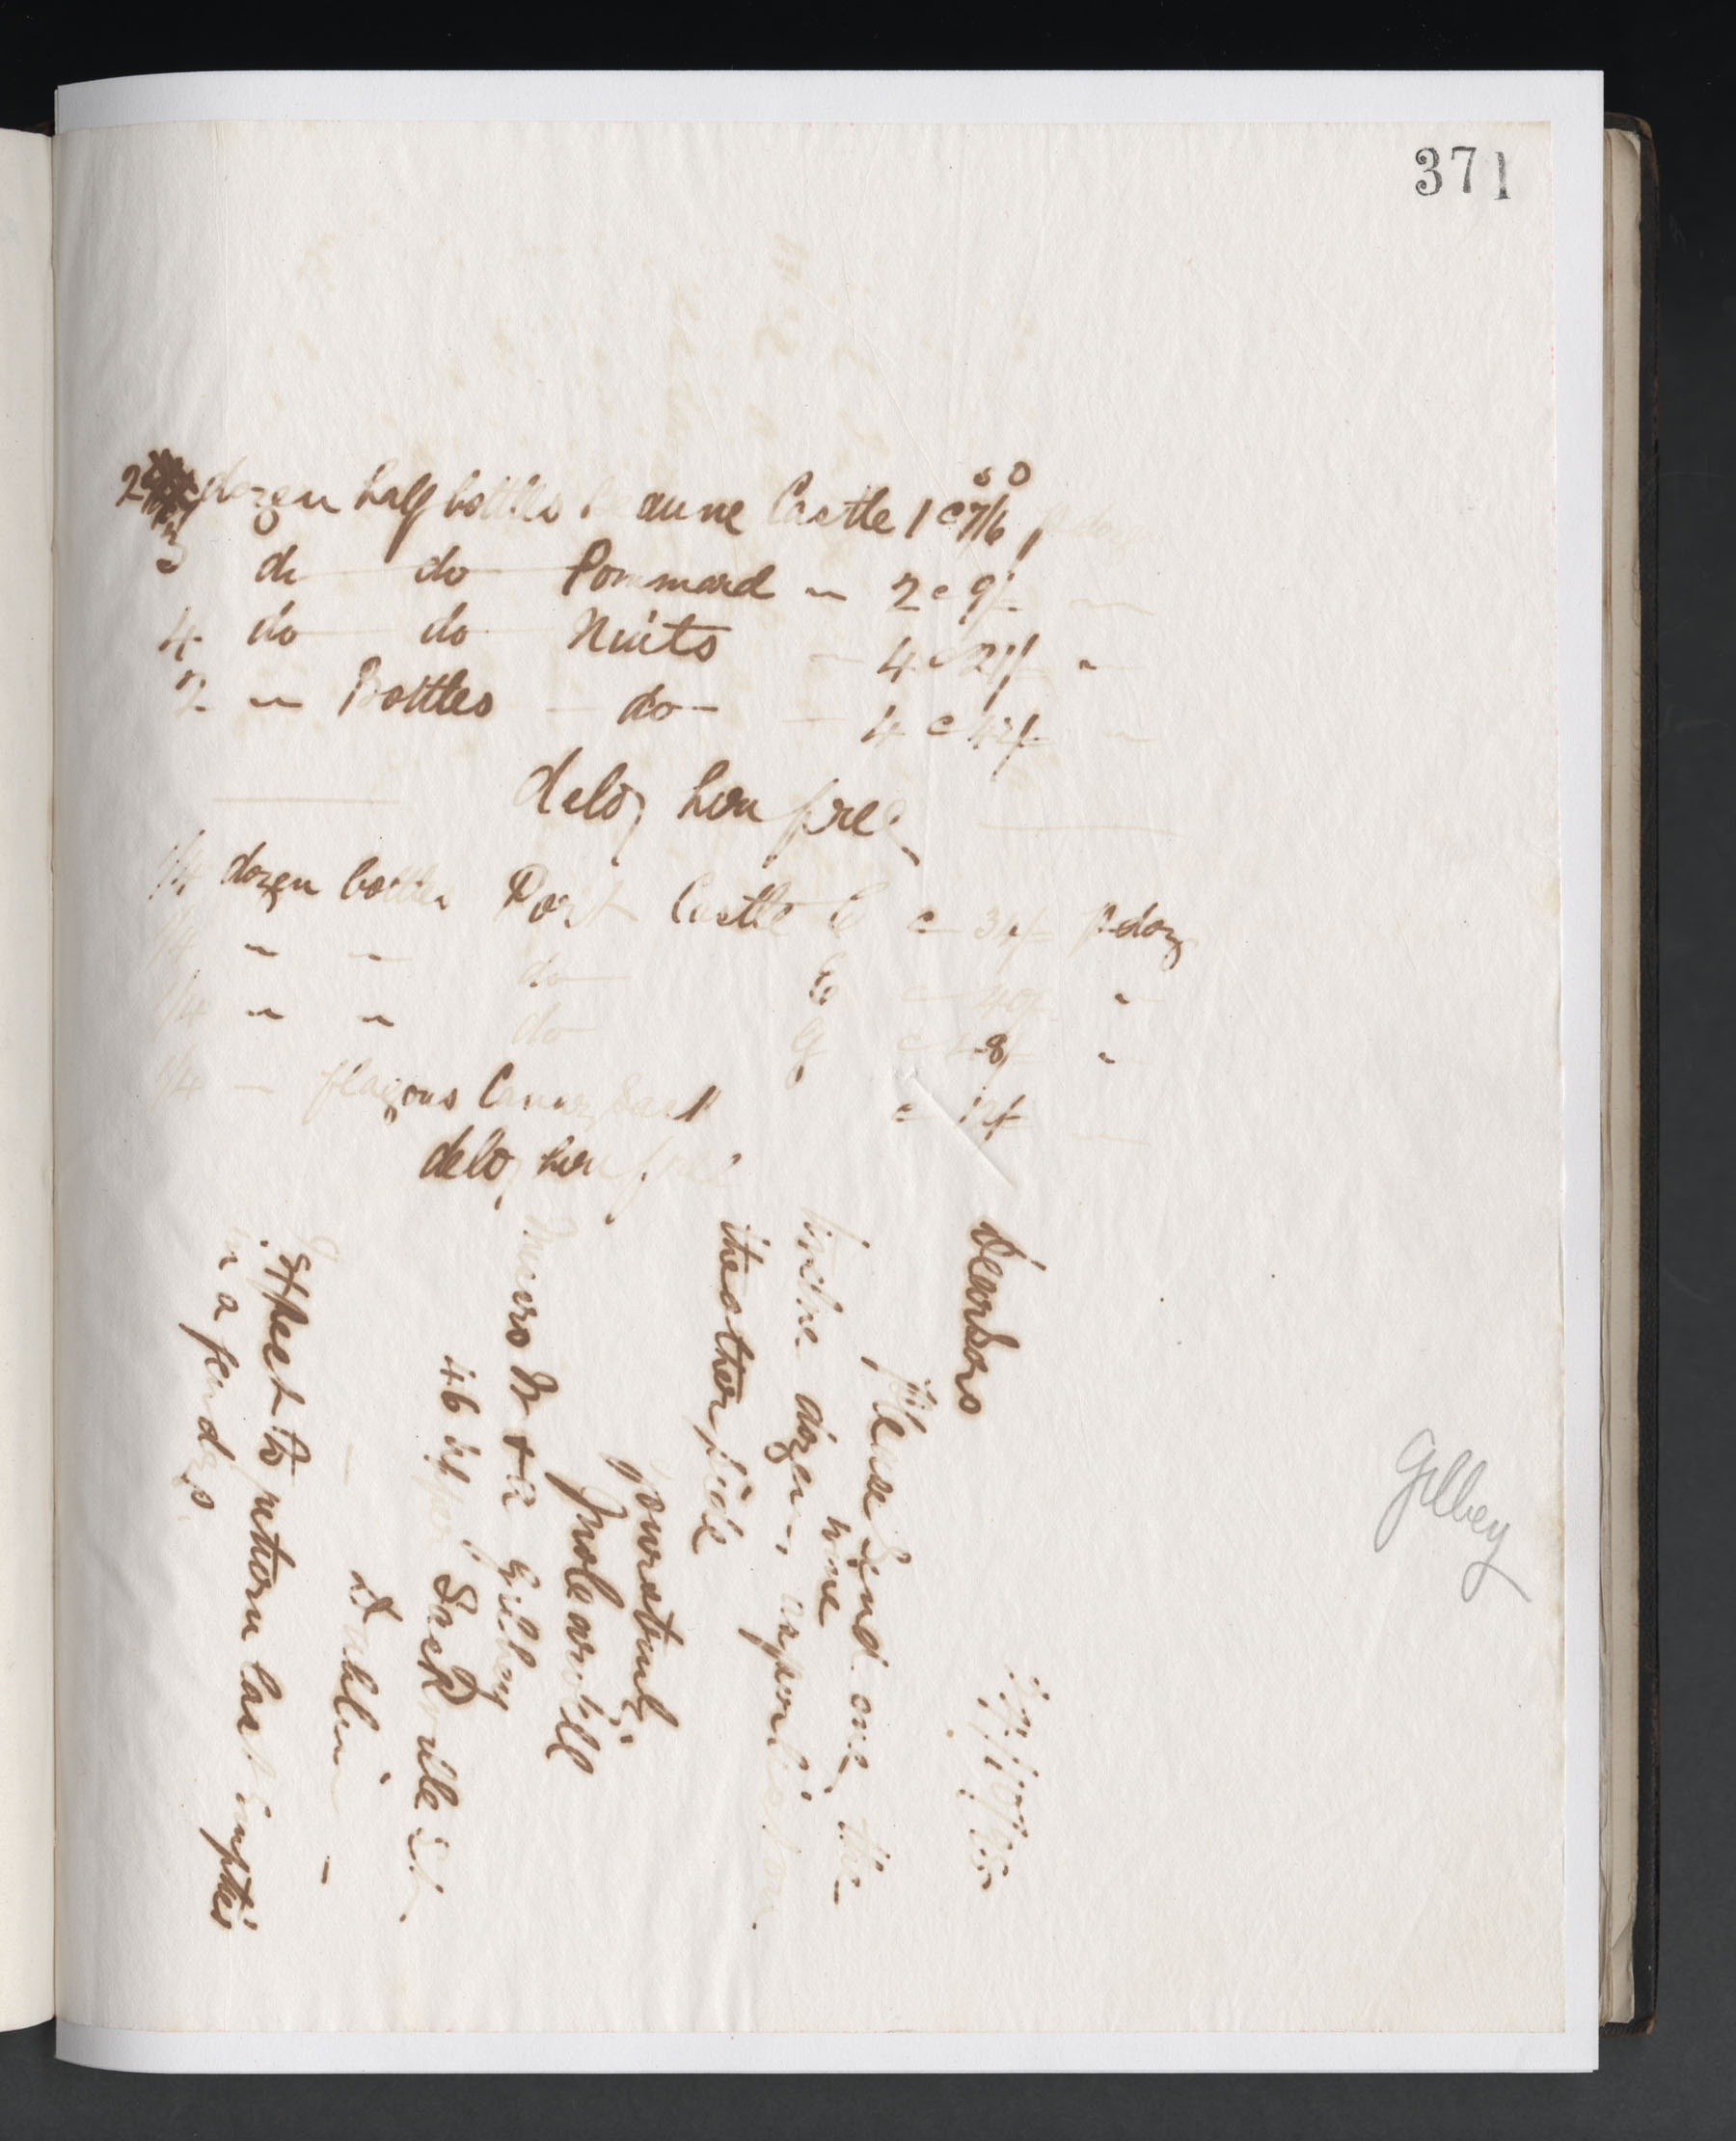 371
2 dozen half bottles Beaune Castle 1 @ 7/6 p doz
s D
3 do do Pommard " 2 @ 9/-
4 do do Nuits 4 @ 21/- "
2 " Bottles do 4 @ 42/-
deloy here free
1/4 dozen bottles Port Castle C @ 34/- p doz
1/4 " " do @ 40/- "
1/4 " " do G @ 48/- "
1/4 " flagons Canary Sack @ 12/-
deloy here free
Dear Sirs
Please Send me the
wine
dozen, as per list on
the other side
yours truly
Molearville
Messrs W & A Gilbey
46 Upper Sackville St
Dublin
I expect to return last empties
in a few days.
Gilbey